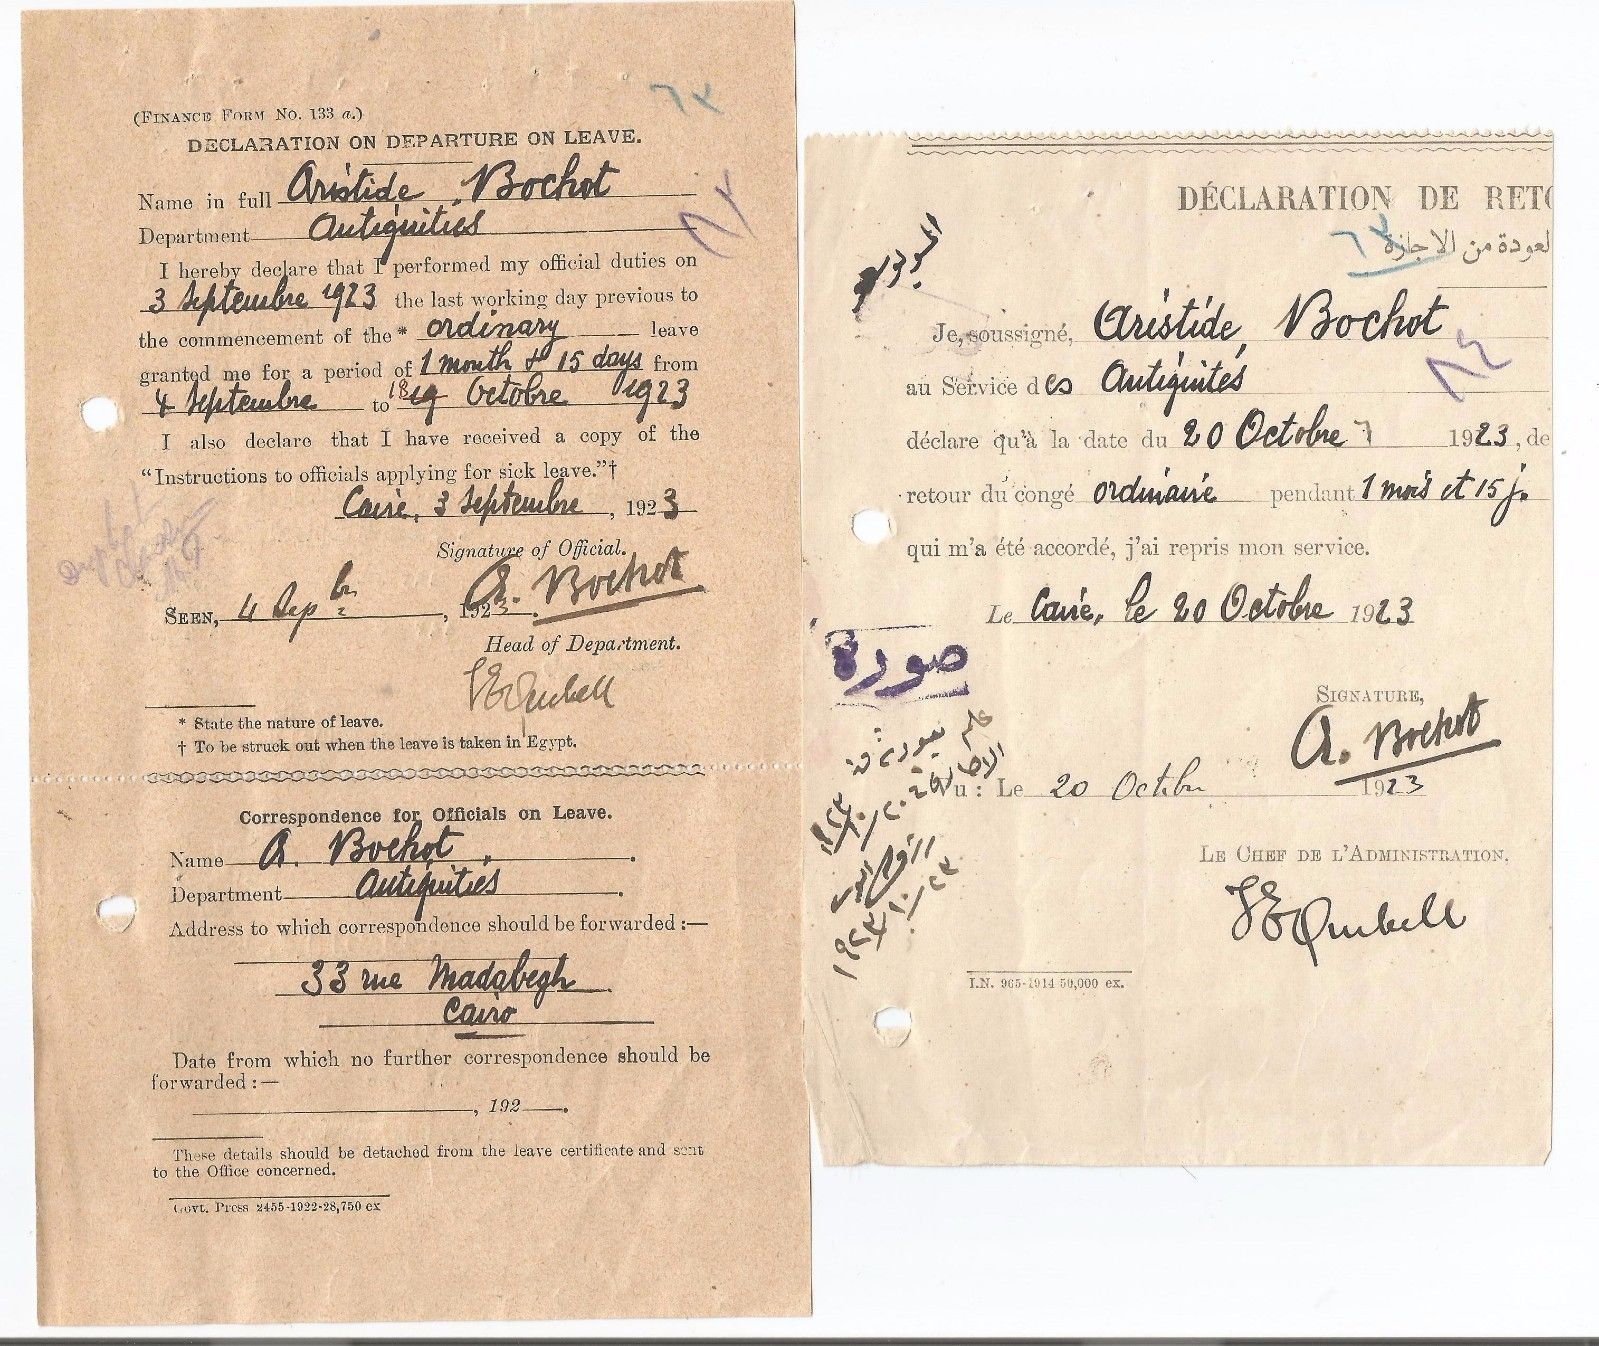 ٦٢
(FINANCE FORM No. 133 a.)
DECLARATION ON DEPARTURE ON LEAVE.
Name in full Aristide Bochot
Department Antiquities
I hereby declare that I performed my official duties on
3 Septembre 1923 the last working day previous to
the commencement of the * ordinary leave
granted me for a period of 1 month & 15 days from
4 Septembre to 18 19 Octobre 1923
I also declare that I have received a copy of the
"Instructions to officials applying for sick leave."†
Caire, 3 Septembre, 1923
Signature of Official.
A. Bochot
SEEN, 4 Sepbr, 1923.
Head of Department.
JEQuibell
* State the nature of leave.
† To be struck out when the leave is taken in Egypt.
Correspondence for Officials on Leave.
Name A. Bochot.
Department Antiquities.
Address to which correspondence should be forwarded:—
33 rue Madabegh
Cairo
Date from which no further correspondence should be
forwarded:—
, 192 .
These details should be detached from the leave certificate and sent
to the Office concerned.
Govt. Press 2455-1922-28,750 ex
DÉCLARATION DE RETO
العودة من الاجازة
٦٣
Je, soussigné, Aristide Bochot
au Service des Antiquités
déclare qu'à la date du 20 Octobre 1923, de
retour du congé ordinaire pendant 1 mois et 15 j.
qui m'a été accordé, j'ai repris mon service.
Le Caire, le 20 Octobre 1923
صورة
SIGNATURE,
A. Bochot
Vu : Le 20 Octobr 1923
LE CHEF DE L'ADMINISTRATION,
JEQuibell
I.N. 965-1914 50,000 ex.